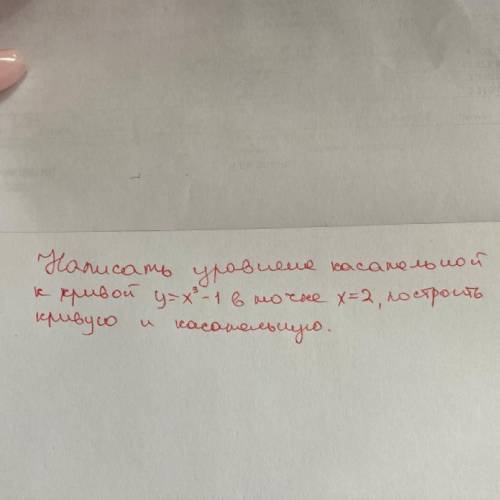 Написать уровнене касательной
к кривой y=x³-1 в точке x=2, построить
кривую и касательную.